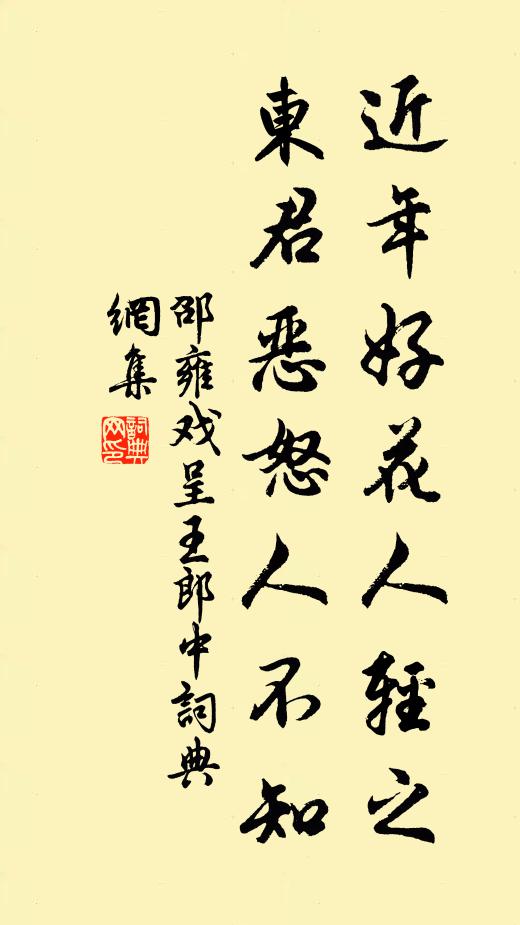 近年好花人輕之
東君惡怒人不知
邵雍戏呈王郎中詞典
網集
詞典
网印